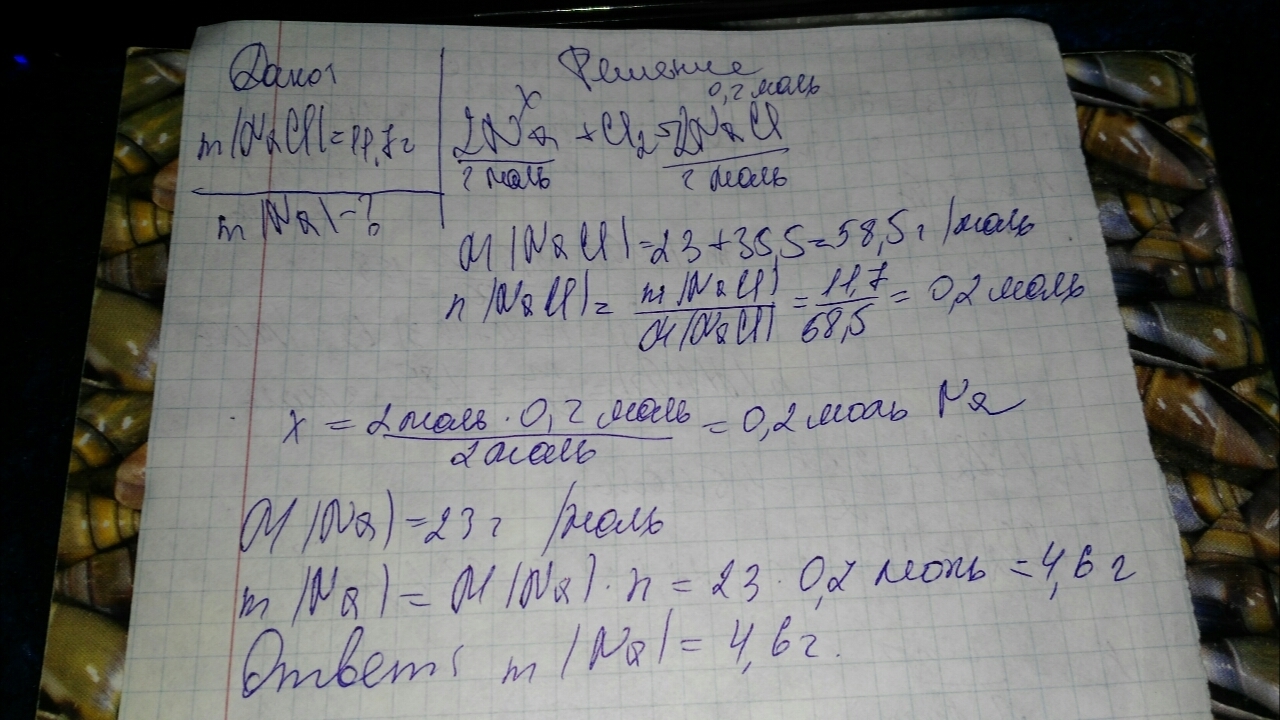 Дано:
m(NaCl)=11,7г
m(Na)-?
Решение
x 0,2 моль
2Na + Cl2 = 2NaCl
2 моль 2 моль
M(NaCl)=23+35,5=58,5г/моль
n(NaCl)= m(NaCl)/M(NaCl) = 11,7/58,5 = 0,2 моль
x = 2 моль · 0,2 моль / 2 моль = 0,2 моль Na
M(Na)=23г/моль
m(Na)=M(Na)·n=23·0,2 моль=4,6г
Ответ: m(Na)=4,6г.